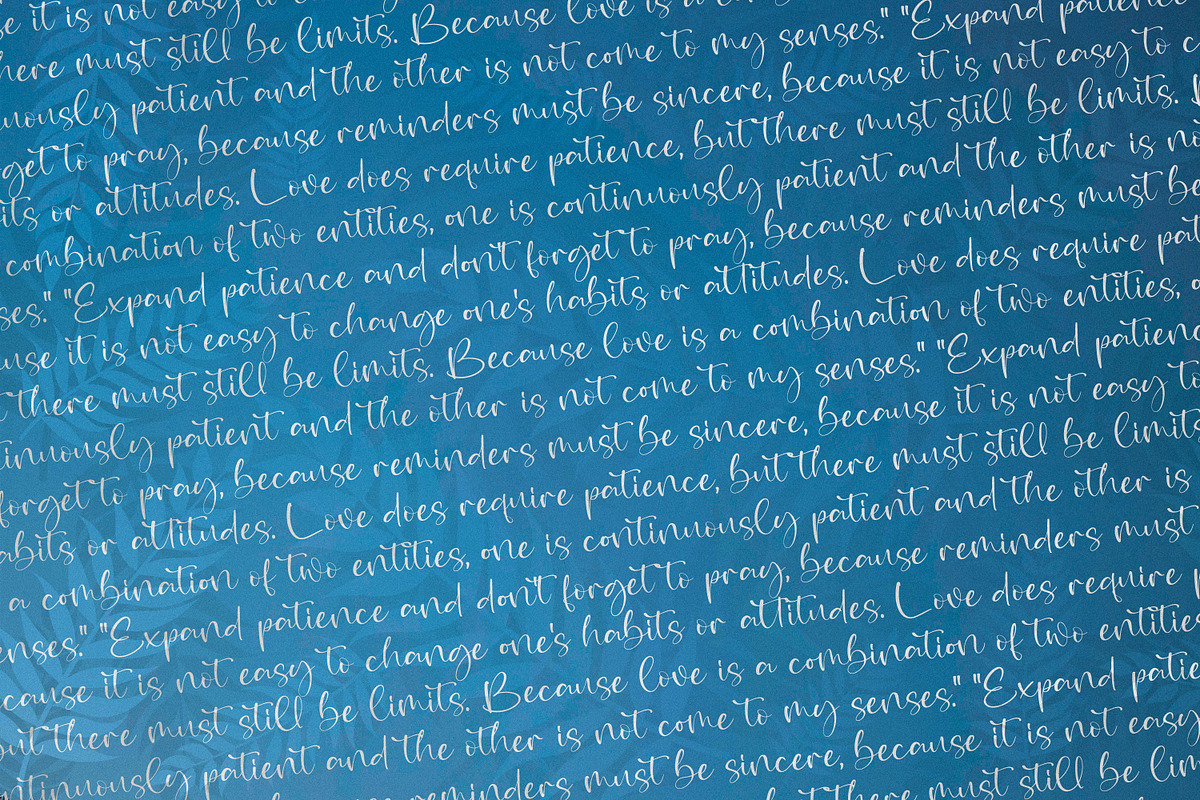 se it is not easy to
here must still be limits. Because love is a
uously patient and the other is not come to my senses." "Expand patience
get to pray, because reminders must be sincere, because it is not easy to c
its or attitudes. Love does require patience, but there must still be limits.
combination of two entities, one is continuously patient and the other is no
ses." "Expand patience and don't forget to pray, because reminders must be
use it is not easy to change one's habits or attitudes. Love does require pat
t there must still be limits. Because love is a combination of two entities, o
inuously patient and the other is not come to my senses." "Expand patienc
forget to pray, because reminders must be sincere, because it is not easy to
abits or attitudes. Love does require patience, but there must still be limits
a combination of two entities, one is continuously patient and the other is
enses." "Expand patience and don't forget to pray, because reminders must
ecause it is not easy to change one's habits or attitudes. Love does require
out there must still be limits. Because love is a combination of two entitie
ntinuously patient and the other is not come to my senses." "Expand patie
reminders must be sincere, because it is not easy
there must still be lim